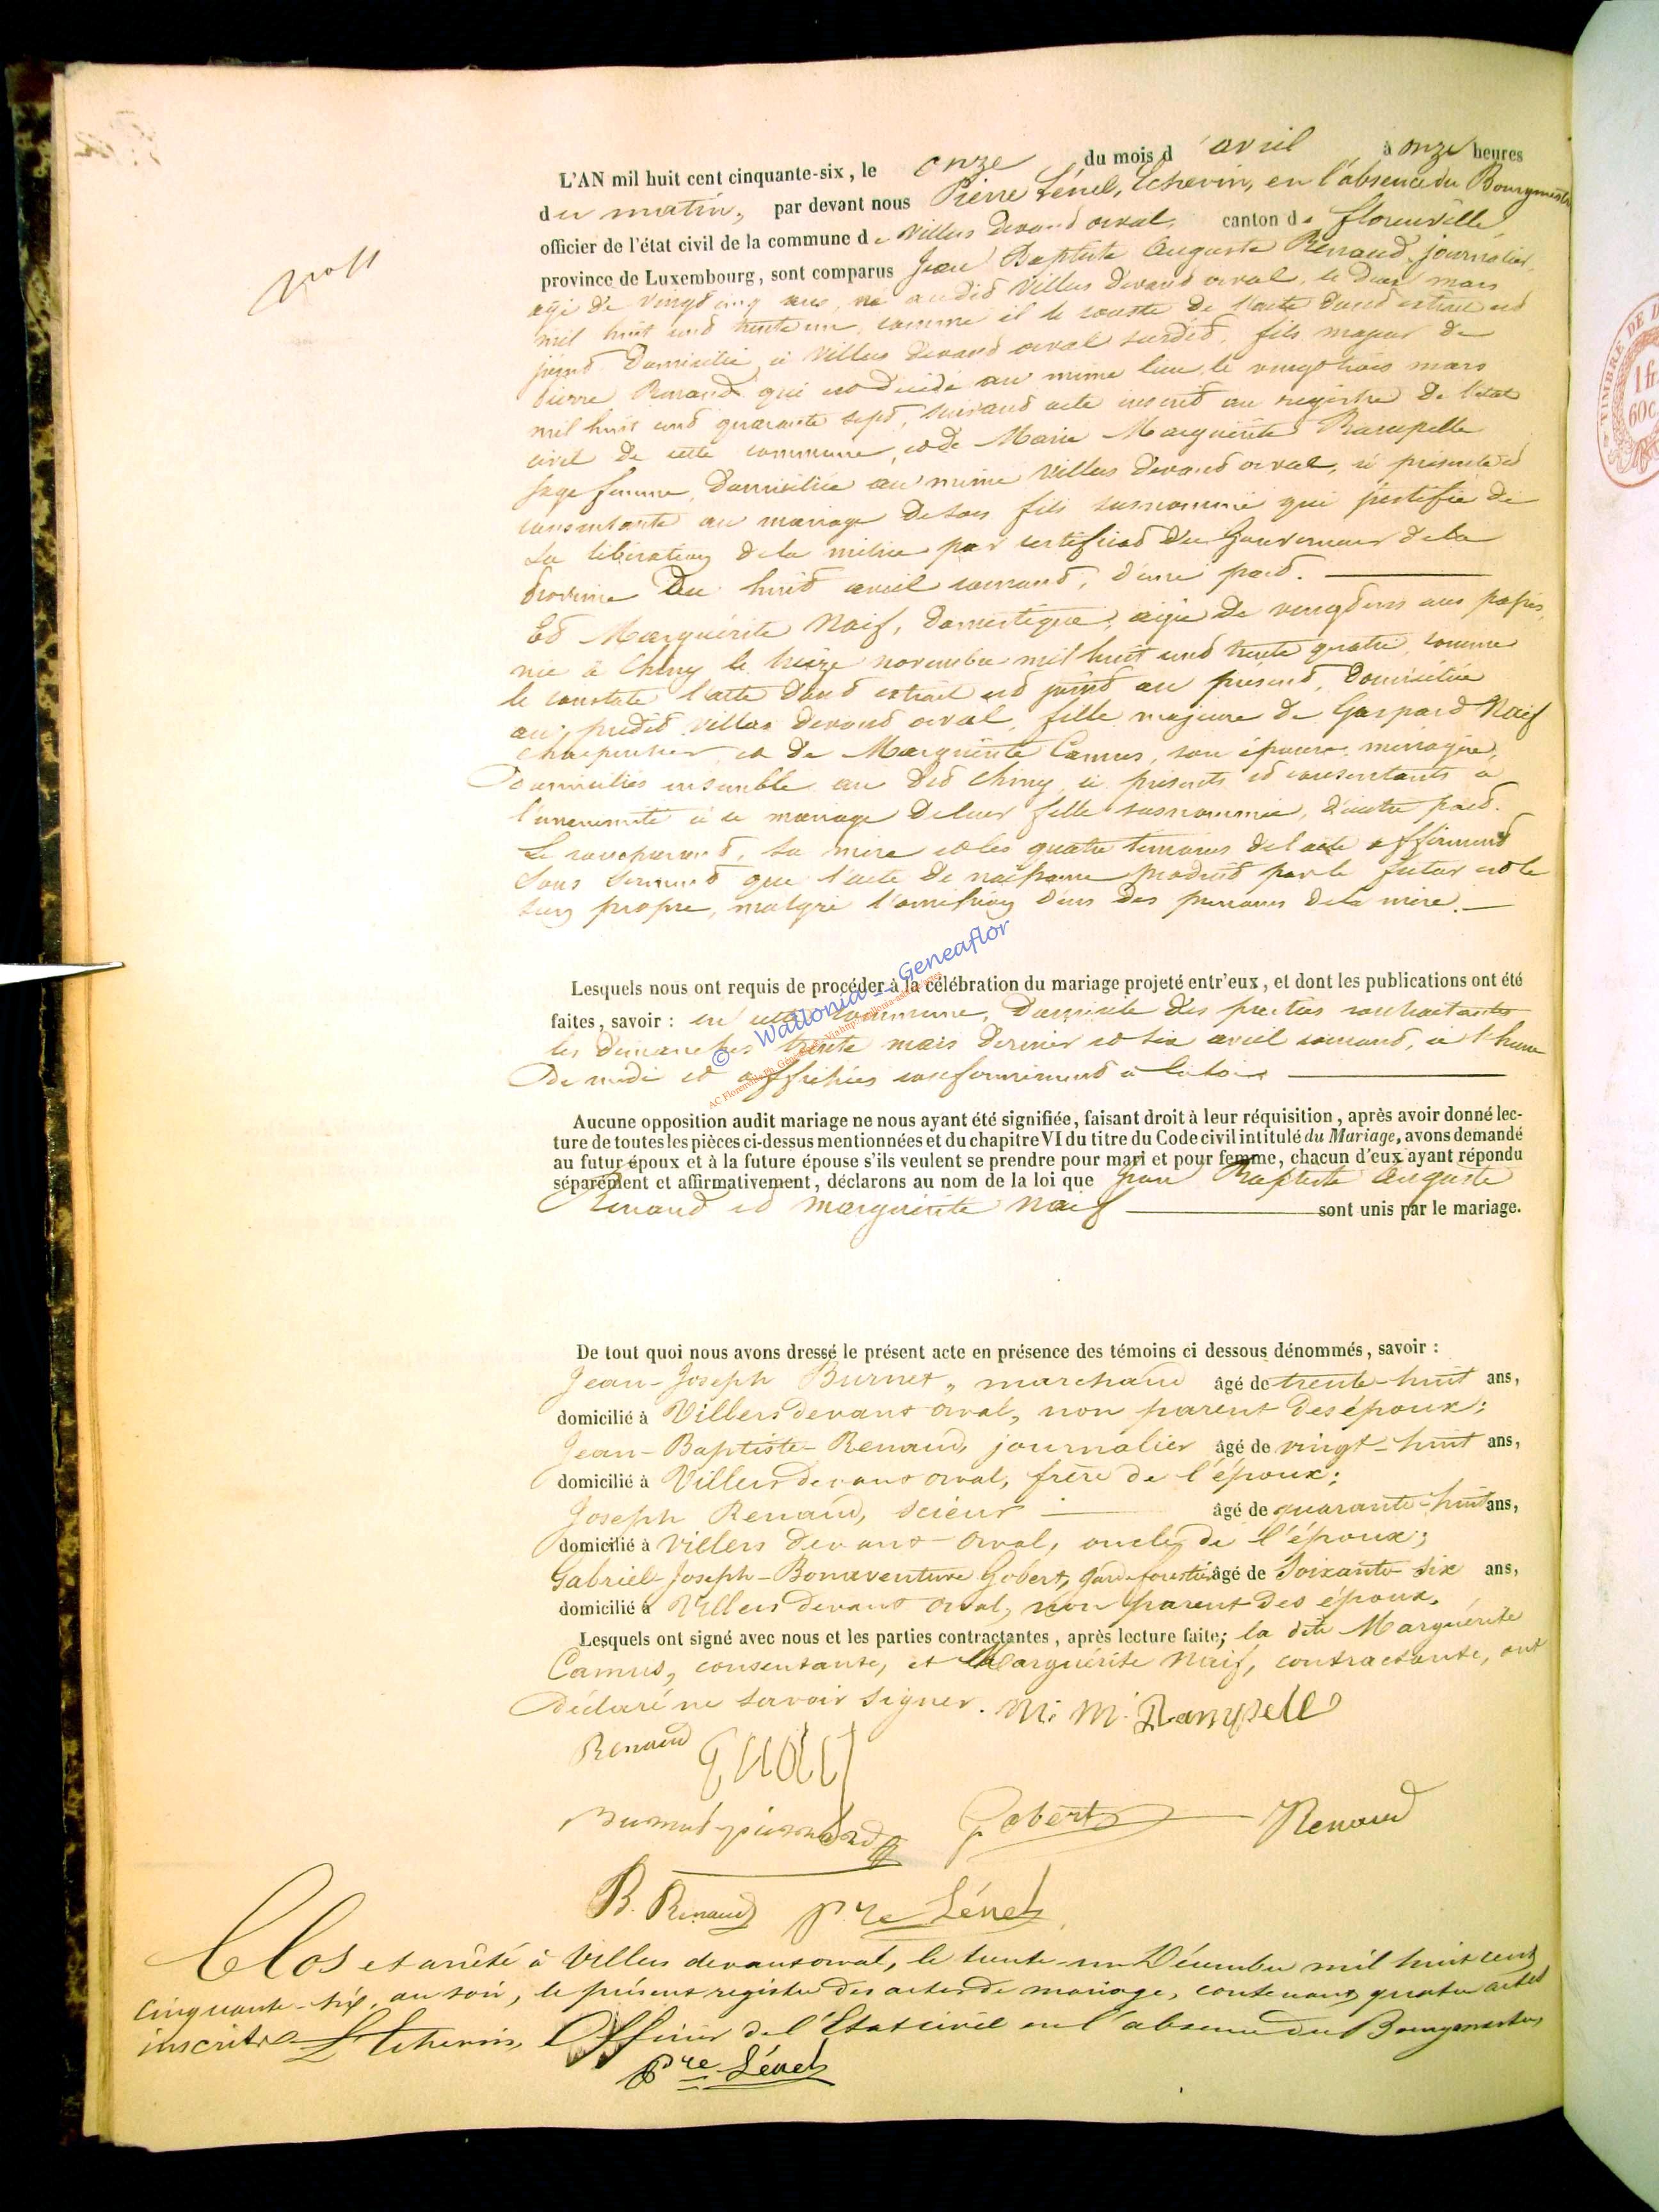 L'AN mil huit cent cinquante-six, le onze du mois d avril à onze heures
du matin, par devant nous Pierre Lénel, Echevin, en l'absence du Bourgmestre
officier de l'état civil de la commune de Villers devant orval, canton de florenville,
province de Luxembourg, sont comparus Jean Baptiste Auguste Renaud, journalier,
agé de vingt cinq ans, né audit Villers devant orval, le deux mars
mil huit cent trente un, comme il le conste de l'acte dont extrait est
joint. Domicilié à Villers devant orval susdit, fils majeur de
Pierre Renaud qui est décédé au même lieu, le vingt trois mars
mil huit cent quarante sept, suivant acte inscrit au registre de l'état
civil de cette commune, et de Marie Marguerite Rampelle
sage femme, domiciliée au même Villers devant orval, ci présente et
consentante au mariage de son fils susnommé qui justifie de
sa libération de la milice par certificat du Gouverneur de la
Province du huit avril courant, d'une part.
Et Marguérite Naif, domestique, agée de vingt un ans passés,
née à Chiny le treize novembre mil huit cent trente quatre, comme
le constate l'acte dont extrait est joint au présent, domiciliée
au prédit Villers devant orval, fille majeure de Gaspard Naif
charpentier, et de Marguérite Camus, son épouse, ménagère,
Domiciliés ensemble au dit Chiny, ci présents et consentants à
l'unanimité à ce mariage de leur fille susnommée, d'autre part.
Le comparant, sa mère et les quatre témoins de l'acte affirment
sous serment que l'acte de naissance produit par le futur est le
sien propre, malgré l'omission d'un des prénoms de la mère.
Lesquels nous ont requis de procéder à la célébration du mariage projeté entr'eux, et dont les publications ont été
faites, savoir : en cette commune, domicile des parties contractantes
les dimanches trente mars dernier et six avril courant, à l'heure
De midi et affichées conformément à la loi
Aucune opposition audit mariage ne nous ayant été signifiée, faisant droit à leur réquisition, après avoir donné lec-
ture de toutes les pièces ci-dessus mentionnées et du chapitre VI du titre du Code civil intitulé du Mariage, avons demandé
au futur époux et à la future épouse s'ils veulent se prendre pour mari et pour femme, chacun d'eux ayant répondu
séparément et affirmativement, déclarons au nom de la loi que Jean Baptiste Auguste
Renaud et Marguérite Naif sont unis par le mariage.
De tout quoi nous avons dressé le présent acte en présence des témoins ci dessous dénommés, savoir :
Jean-Joseph Burnet, marchand âgé de trente-huit ans,
domicilié à Villers devant Orval, non parent des époux;
Jean-Baptiste Renaud, journalier âgé de vingt-huit ans,
domicilié à Villers devant Orval, frère de l'époux;
Joseph Renaud, scieur âgé de quarante-huit ans,
domicilié à Villers devant-Orval, oncle de l'époux;
Gabriel-Joseph-Bonaventure Gobert, garde forestier âgé de Soixante-six ans,
domicilié à Villers devant Orval, non parent des époux.
Lesquels ont signé avec nous et les parties contractantes, après lecture faite; la dite Marguérite
Camus, consentante, et Marguérite Naif, contractante, ont
Déclaré ne savoir signer. M. M. Rampelle
Renaud
Gobert Renaud
B. Renaud Pre Lénel
Clos et arrêté à Villers devant orval, le trente-un Décembre mil huit cent
cinquante-six, au soir, le présent registre des actes de mariage, contenant quatre actes
inscrits. L'Echevin, Officier de l'Etat civil en l'absence du Bourgmestre,
Pre Lénel
© Wallonia -- Geneaflor
TIMBRE DE D
1 fr.
60 c.